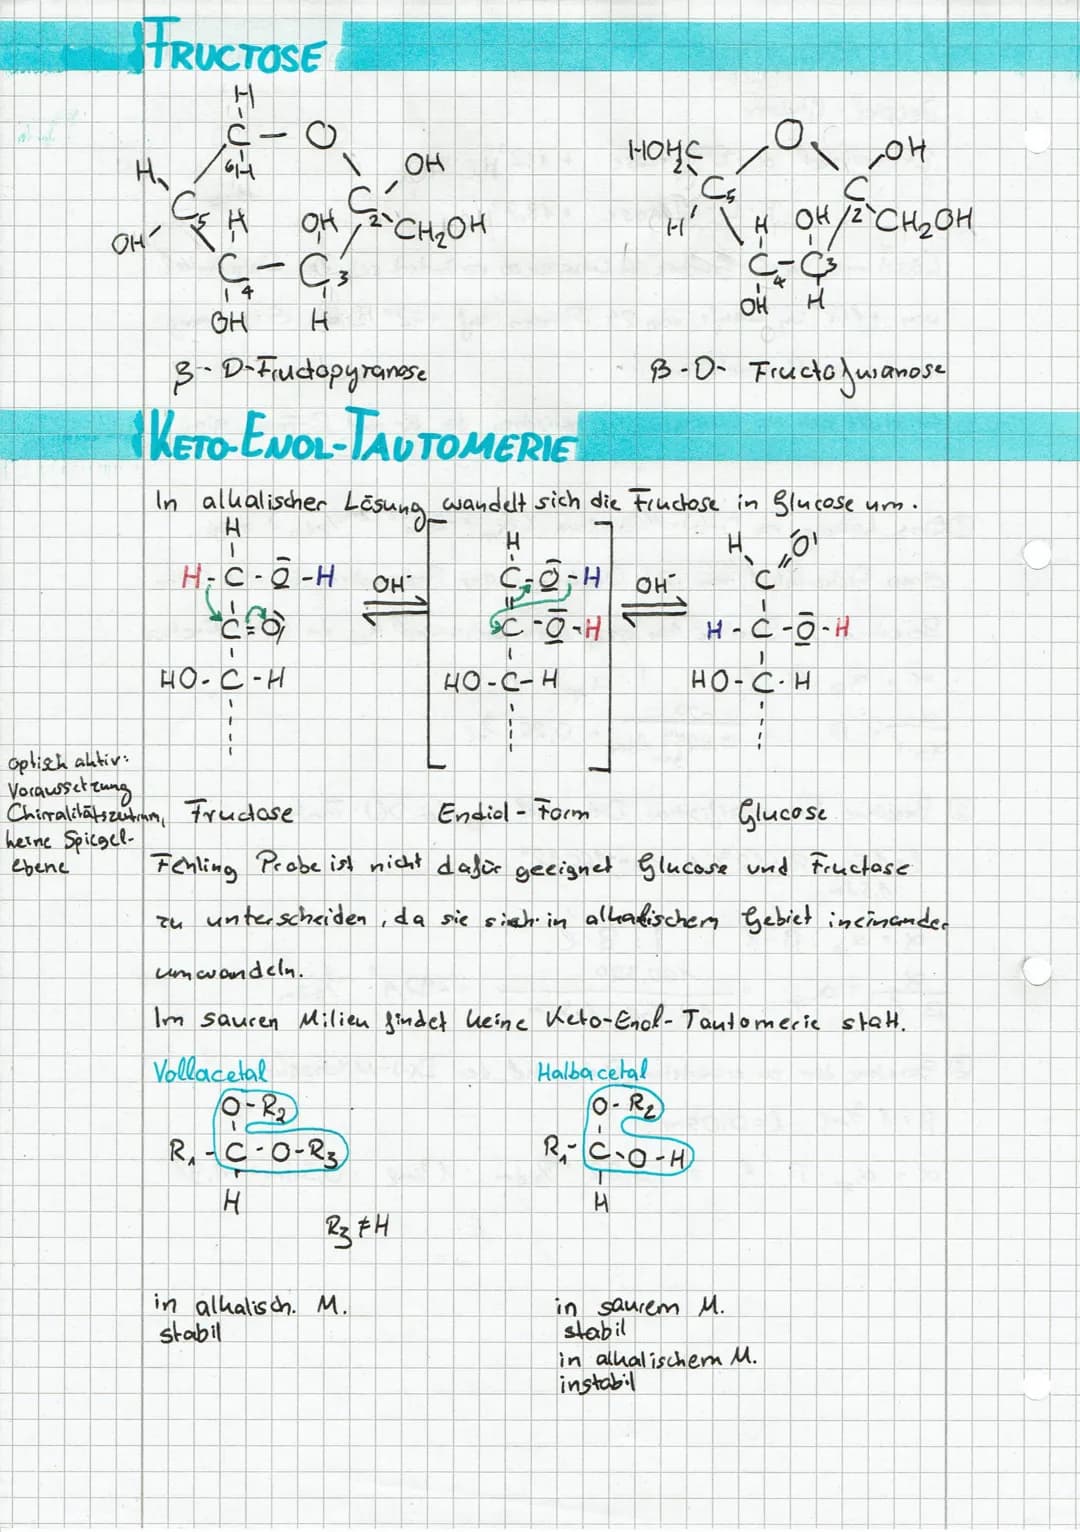 FRUCTOSE
H
C - O
6H
H
OH
C5
H
OH
C2
CH2OH
OH
C - C3
4
OH
H
β-D-Fructopyranose
HOH2C
O
OH
C5
C
H
H
OH
2
CH2OH
C - C3
4
OH
H
β-D-Fructofuranose
KETO-ENOL-TAUTOMERIE
In alkalischer Lösung wandelt sich die Fructose in Glucose um.
H
H - C - O - H
C = O
HO - C - H
OH⁻
H
C - O - H
C - O - H
HO - C - H
OH⁻
H
O
C
H - C - O - H
HO - C - H
optisch aktiv:
Voraussetzung
Chirralitätszentrum,
keine Spiegel-
ebene
Fructose
Endiol-Form
Glucose
Fehling Probe ist nicht dafür geeignet Glucose und Fructose
zu unterscheiden, da sie sich in alkalischem Gebiet ineinander
umwandeln.
Im sauren Milieu findet keine Keto-Enol-Tautomerie statt.
Vollacetal
O - R2
R1 - C - O - R3
H
R3 ≠ H
in alkalisch. M.
stabil
Halbacetal
O - R2
R1 - C - O - H
H
in saurem M.
stabil
in alkalischem M.
instabil